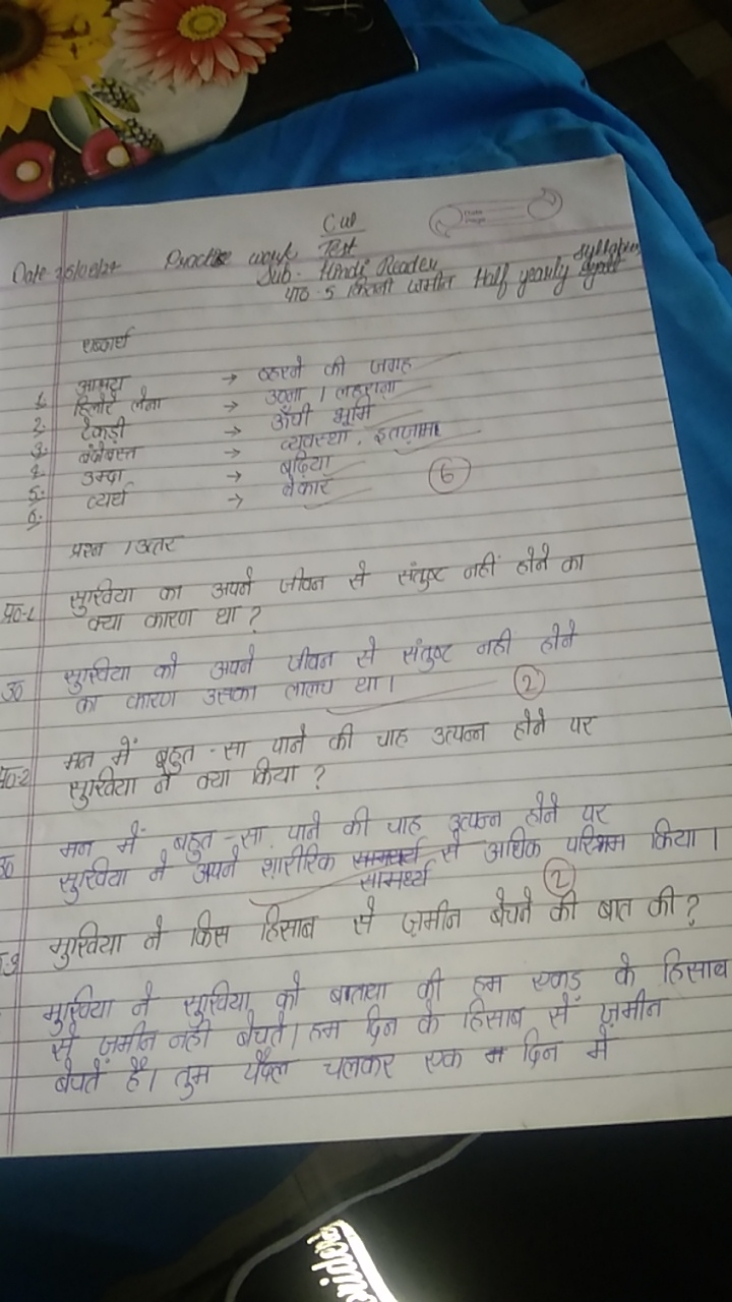 Cw
Test
Date Practice work
Sub - Hindi Reader
पाठ - 5 कितनी ज़मीन Half yearly syllabus
शब्दार्थ
1. आसरा → ठहरने की जगह
2. हिलोरें लेना → उठना / लहराना
3. टेकड़ी → ऊँची भूमि
4. बंदोबस्त → व्यवस्था, इंतज़ाम
5. उम्दा → बढ़िया
6. व्यर्थ → बेकार
6
प्रश्न / उत्तर
प्र०-1 सुखिया का अपने जीवन से संतुष्ट नहीं होने का
क्या कारण था?
उ० सुखिया को अपने जीवन से संतुष्ट नही होने
का कारण उसका लालच था।
2
प्र०-2 मन में बहुत-सा पाने की चाह उत्पन्न होने पर
सुखिया ने क्या किया?
उ० मन में बहुत-सा पाने की चाह उत्पन्न होने पर
सुखिया ने अपने शारीरिक से अधिक परिश्रम किया।
सामर्थ्य
2
-3 मुखिया ने किस हिसाब से ज़मीन बेचने की बात की?
मुखिया ने सुखिया को बताया की हम एकड़ के हिसाब
से ज़मीन नही बेचते। हम दिन के हिसाब से ज़मीन
बेचते है। तुम पैदल चलकर एक दिन में